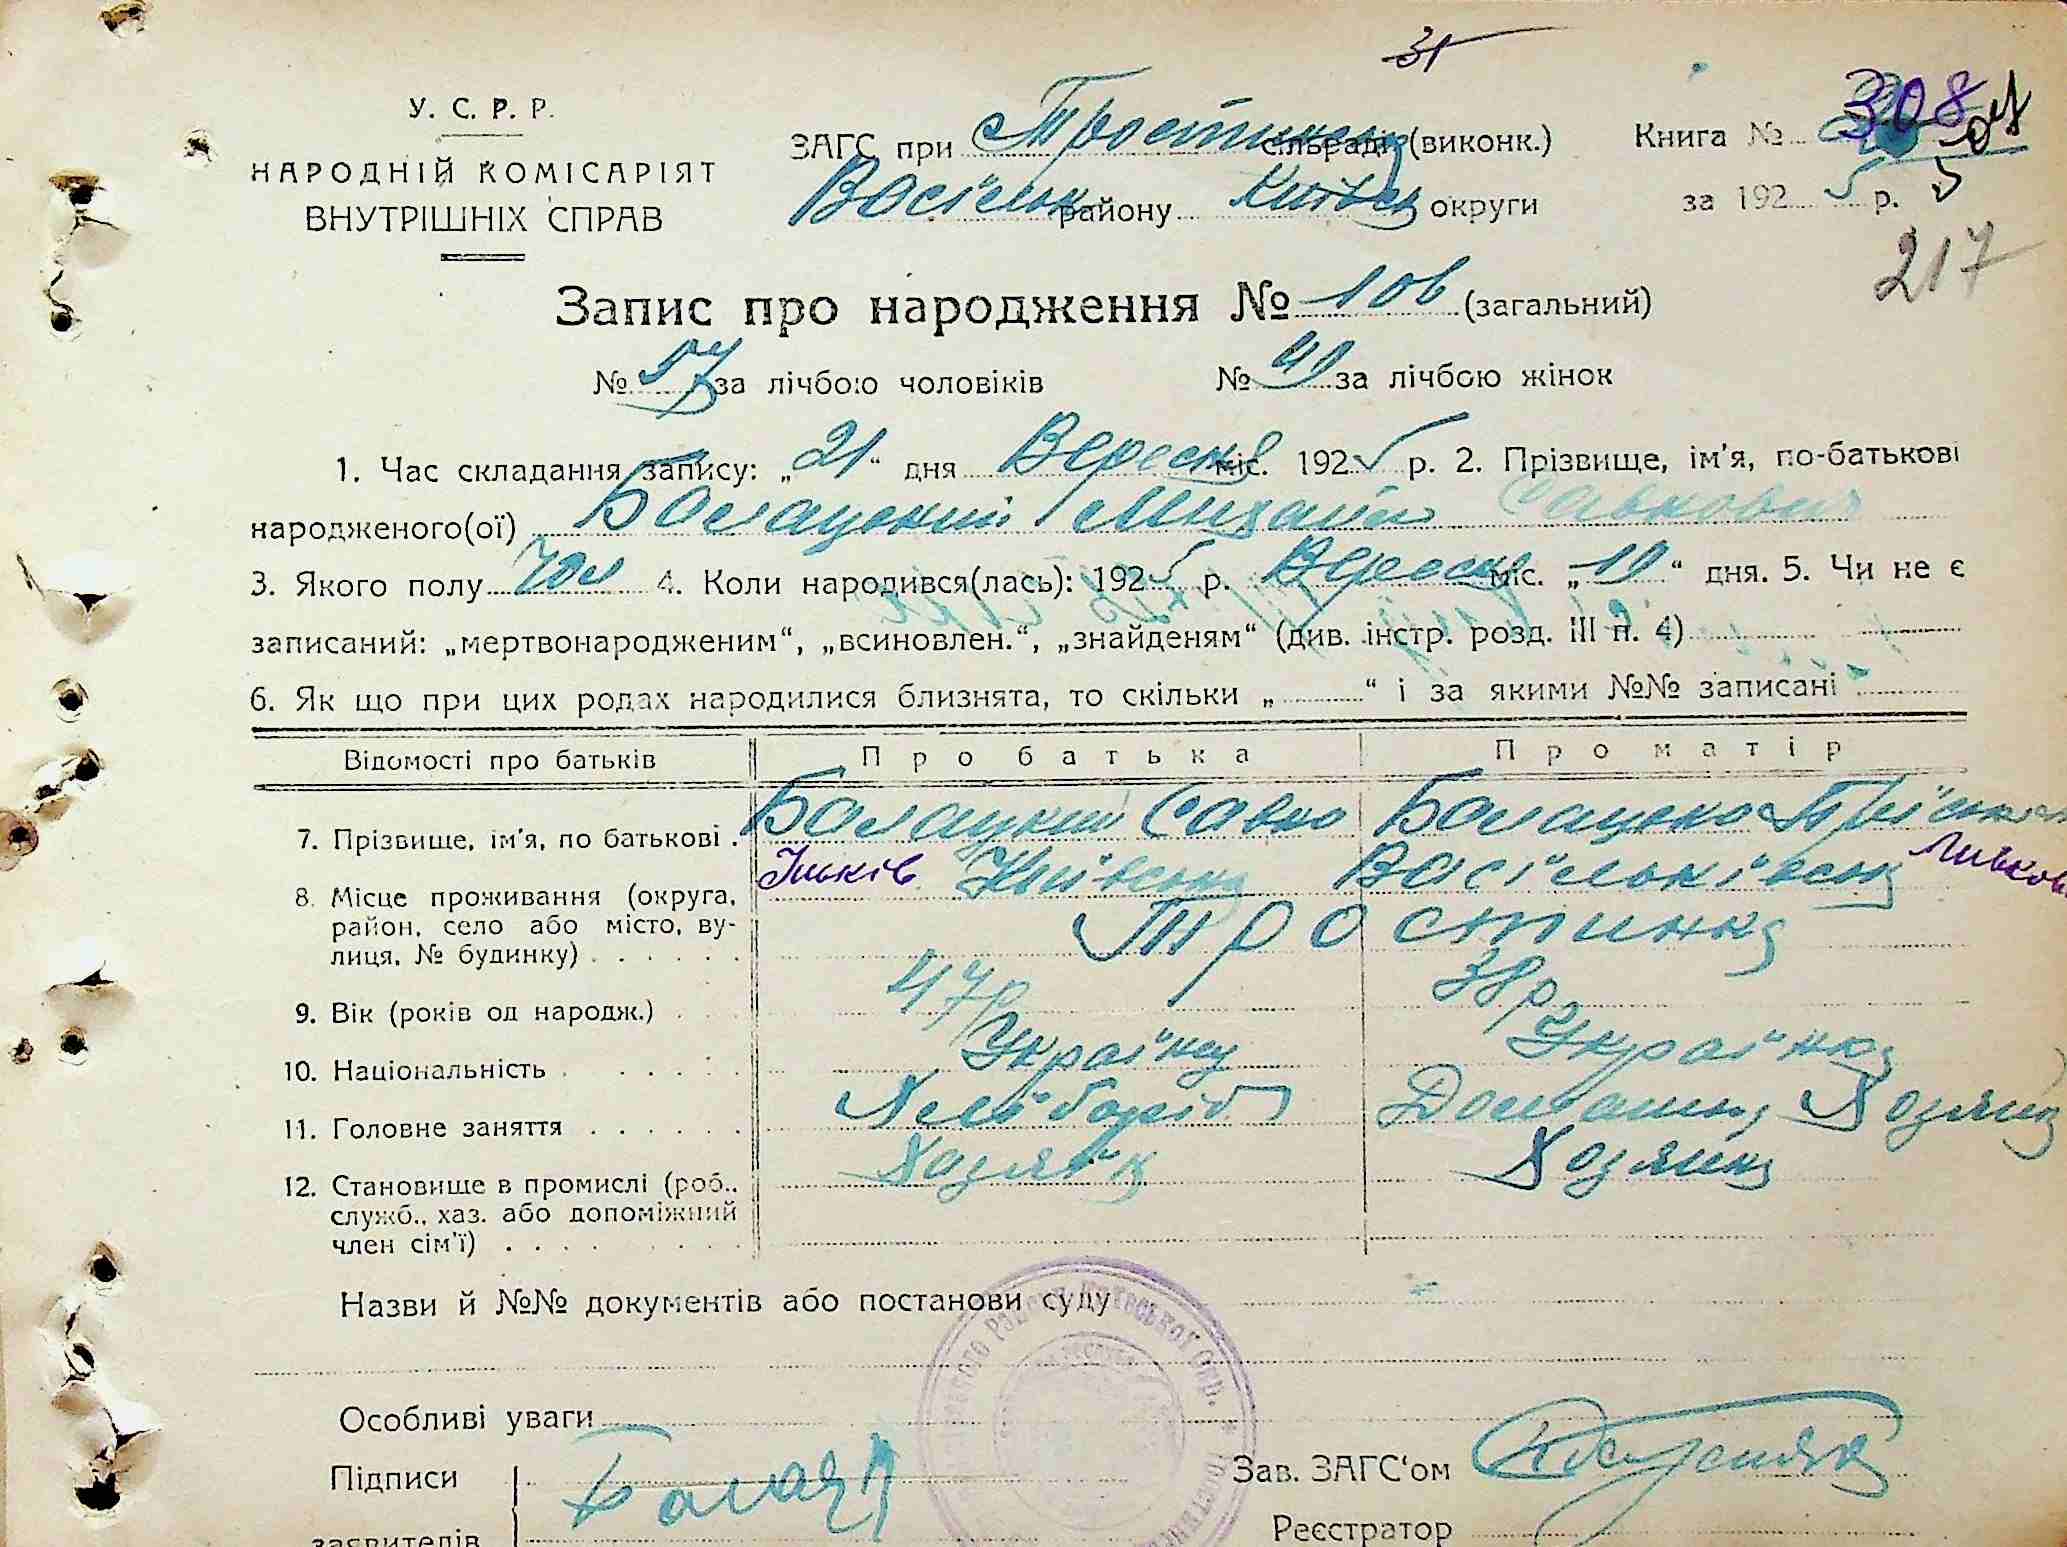 31
У. С. Р. Р.
НАРОДНІЙ КОМІСАРІЯТ
ВНУТРІШНІХ СПРАВ
ЗАГС при Тростинськ сільраді (виконк.)
Васільк району Київськ округи
Книга № 308
за 1925 р.
217
Запис про народження № 106 (загальний)
№ 57 за лічбою чоловіків № 49 за лічбою жінок
1. Час складання запису: „21“ дня Вересня міс. 1925 р. 2. Прізвище, ім'я, по-батькові
народженого(ої) Балацький Михайло Савкович
3. Якого полу чол 4. Коли народився(лась): 1925 р. Вересня міс. „19“ дня. 5. Чи не є
записаний: „мертвонародженим“, „всиновлен.“, „знайденям“ (див. інстр. розд. III п. 4)
6. Як що при цих родах народилися близнята, то скільки „ “ і за якими №№ записані
Відомості про батьків Про батька Про матір
7. Прізвище, ім'я, по батькові . Балацкий Савко Балацька
8. Місце проживання (округа, Київська Васільківськ
район, село або місто, ву- Тростинка
лиця, № будинку)
9. Вік (років од народж.) 47 р 38 р
10. Національність Українц Українка
11. Головне заняття Хлібороб Домашн Хозяйка
12. Становище в промислі (роб., Хозяїн Хозяйка
служб., хаз. або допоміжний
член сім'ї)
Назви й №№ документів або постанови суду
Особливі уваги
Підписи
заявителів
Зав. ЗАГС'ом
Реєстратор